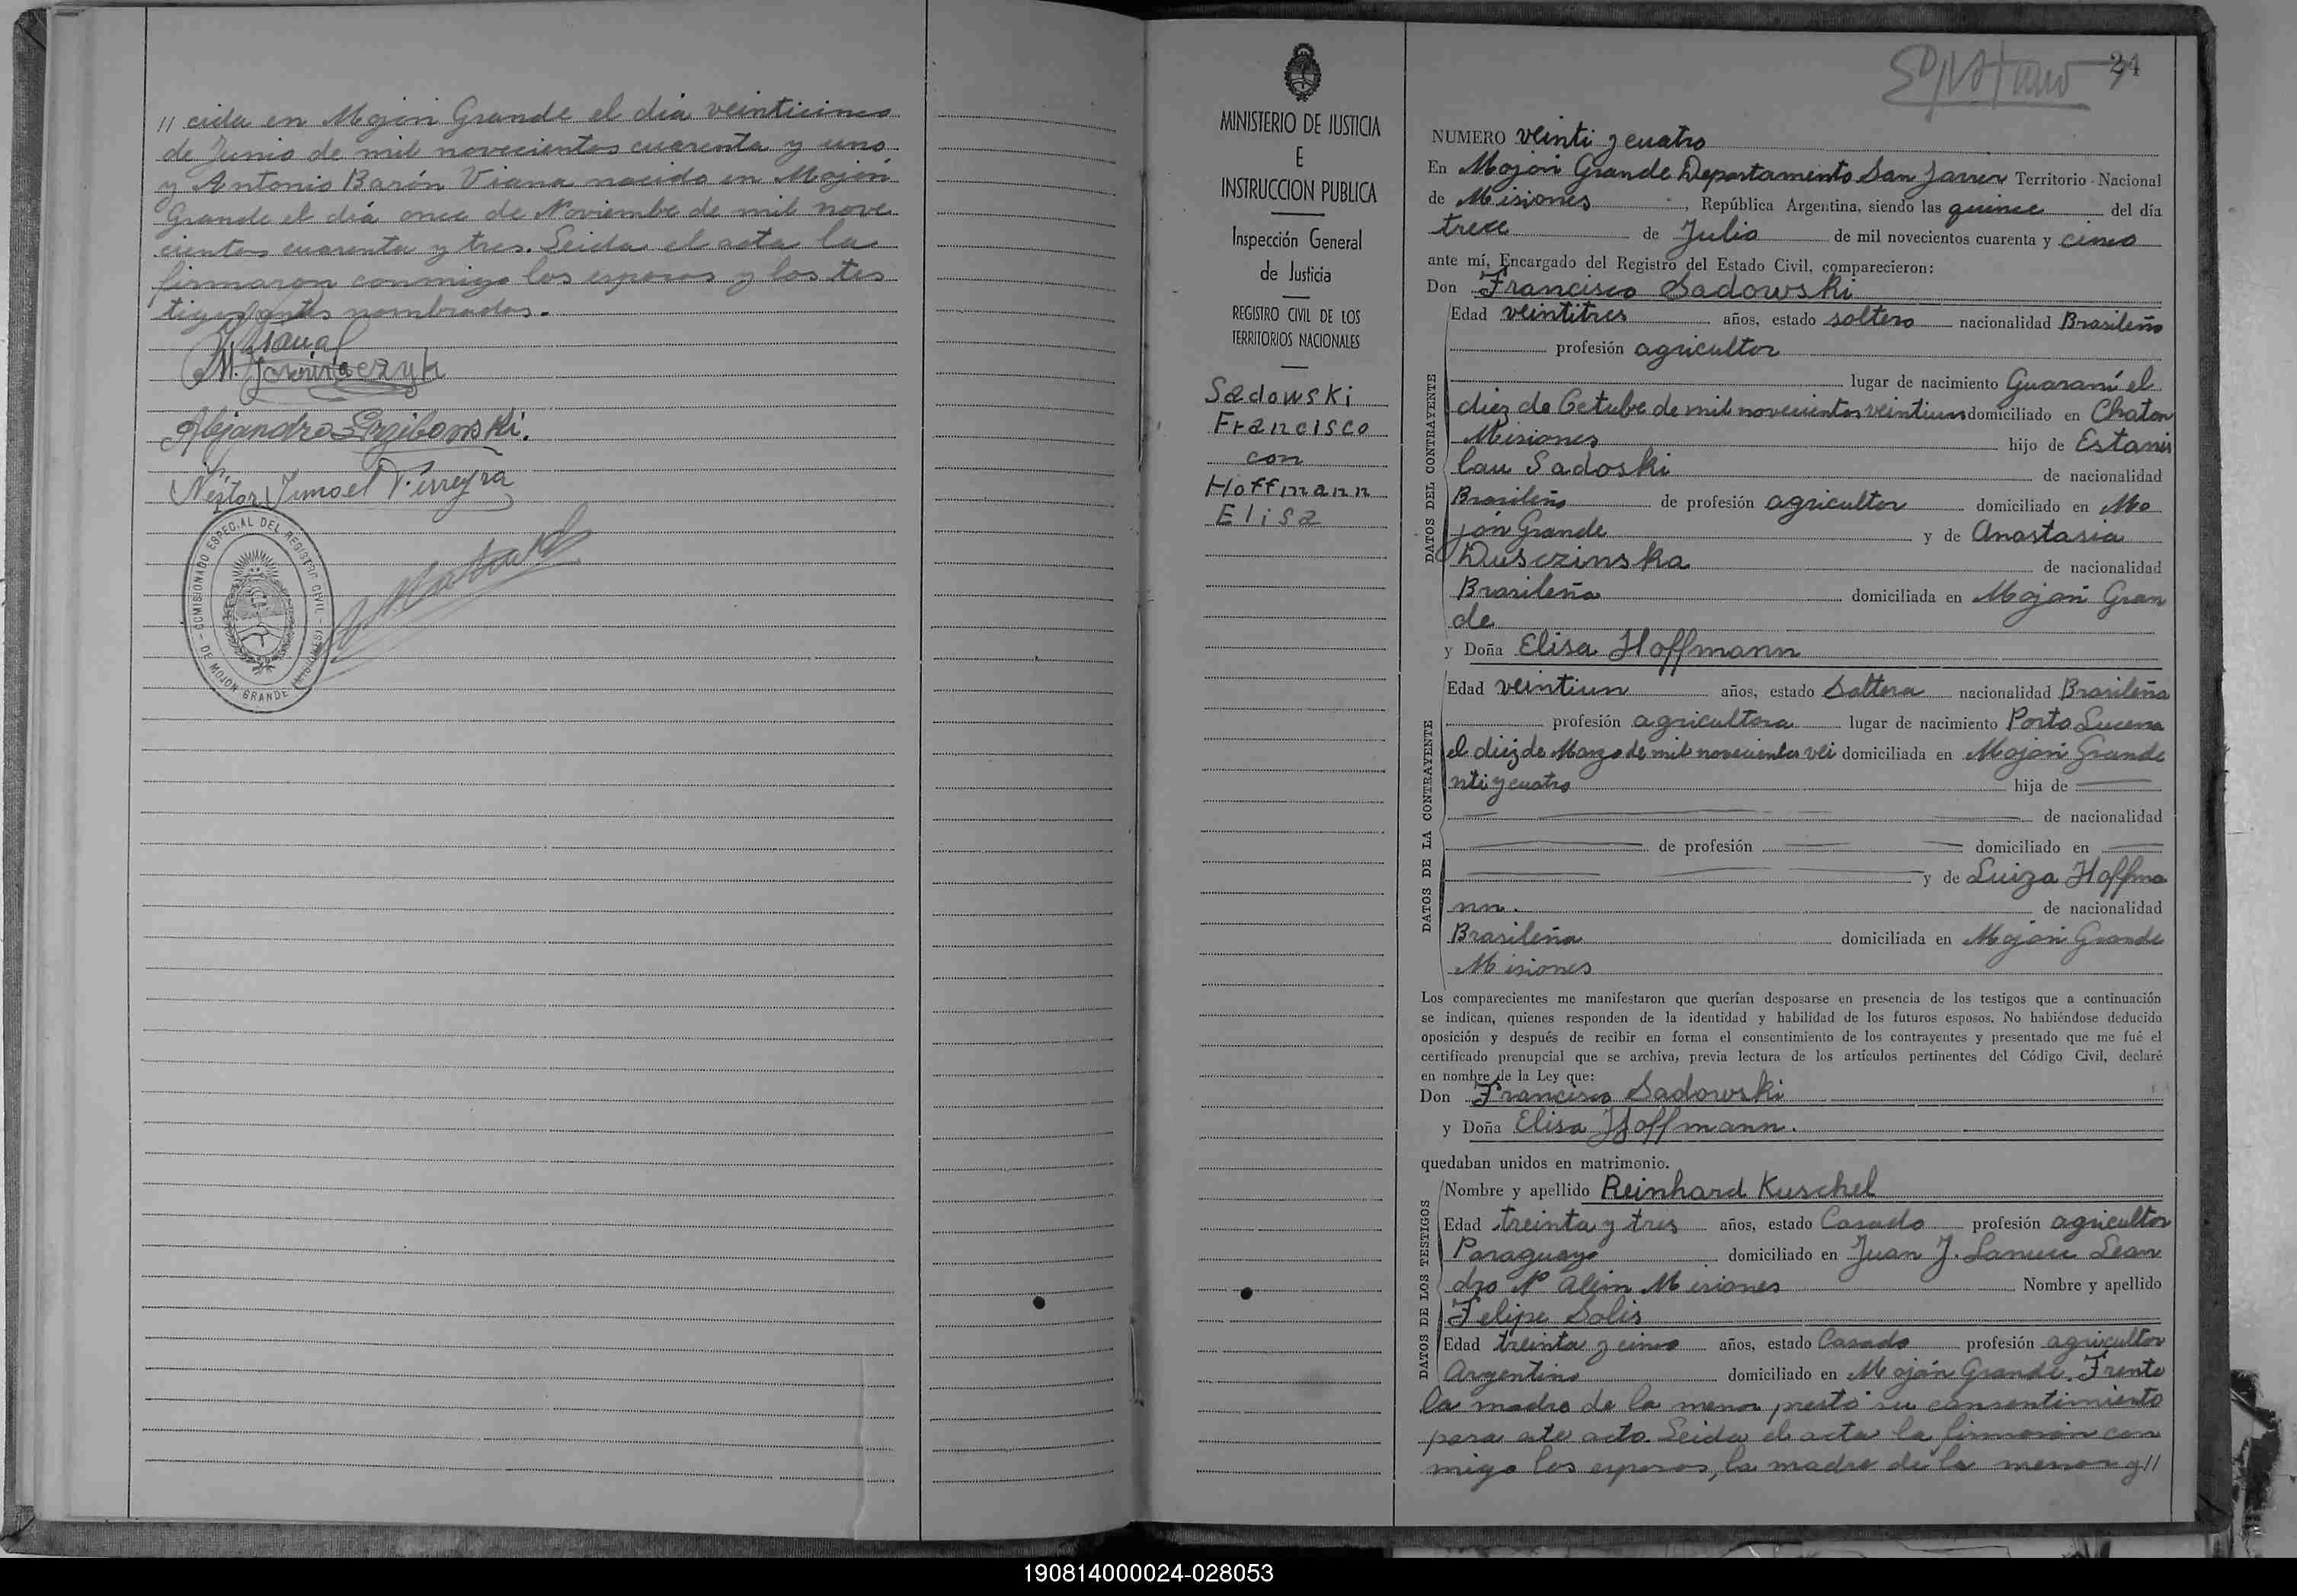 // cida en Mojón Grande el dia veinticinco
de Junio de mil novecientos cuarenta y uno
y Antonio Barón Viana nacido en Mojón
Grande el día once de Noviembre de mil nove
cientos cuarenta y tres. Leida el acta la
firmaron conmigo los esposos y los tes
tigos antes nombrados.
Viana
Alejandro
Nestor Ismael Ferreyra
COMISIONADO ESPECIAL DEL REGISTRO CIVIL
DE MOJON GRANDE (MISIONES)
MINISTERIO DE JUSTICIA
E
INSTRUCCION PUBLICA
Inspección General
de Justicia
REGISTRO CIVIL DE LOS
TERRITORIOS NACIONALES
Sadowski
Francisco
con
Hoffmann
Elisa
24
NUMERO veinti y cuatro
En Mojón Grande Departamento San Javier Territorio Nacional
de Misiones, República Argentina, siendo las quince del día
trece de Julio de mil novecientos cuarenta y cinco
ante mí, Encargado del Registro del Estado Civil, comparecieron:
Don Francisco Sadowski
DATOS DEL CONTRAYENTE
Edad veintitres años, estado soltero nacionalidad Brasileño
profesión agricultor
lugar de nacimiento Guaraní el
diez de Octubre de mil novecientos veintiuno domiciliado en Chaton
Misiones hijo de Estanis
lau Sadoski de nacionalidad
Brasileño de profesión agricultor domiciliado en Mo
jón Grande y de Anastasia
Dusczinska de nacionalidad
Brasileña domiciliada en Mojón Gran
de
y Doña Elisa Hoffmann
DATOS DE LA CONTRAYENTE
Edad veintiun años, estado Soltera nacionalidad Brasileña
profesión agricultora lugar de nacimiento Porto Lucena
el diez de Marzo de mil novecientos vei domiciliada en Mojón Grande
nti y cuatro hija de
de nacionalidad
de profesión domiciliado en
y de Luiza Hoffma
nn. de nacionalidad
Brasileña domiciliada en Mojón Grande
Misiones
Los comparecientes me manifestaron que querían desposarse en presencia de los testigos que a continuación
se indican, quienes responden de la identidad y habilidad de los futuros esposos. No habiéndose deducido
oposición y después de recibir en forma el consentimiento de los contrayentes y presentado que me fué el
certificado prenupcial que se archiva, previa lectura de los artículos pertinentes del Código Civil, declaré
en nombre de la Ley que:
Don Francisco Sadowski
y Doña Elisa Hoffmann.
quedaban unidos en matrimonio.
DATOS DE LOS TESTIGOS
Nombre y apellido Reinhard Kuschel
Edad treinta y tres años, estado Casado profesión agricultor
Paraguayo domiciliado en Juan J. Lanusse Lean
dro N Alem Misiones Nombre y apellido
Felipe Solis
Edad treinta y cinco años, estado Casado profesión agricultor
Argentino domiciliado en Mojón Grande. Frente
la madre de la menor prestó su consentimiento
para este acto. Leida el acta la firmaron con
migo los esposos, la madre de la menor y //
190814000024-028053